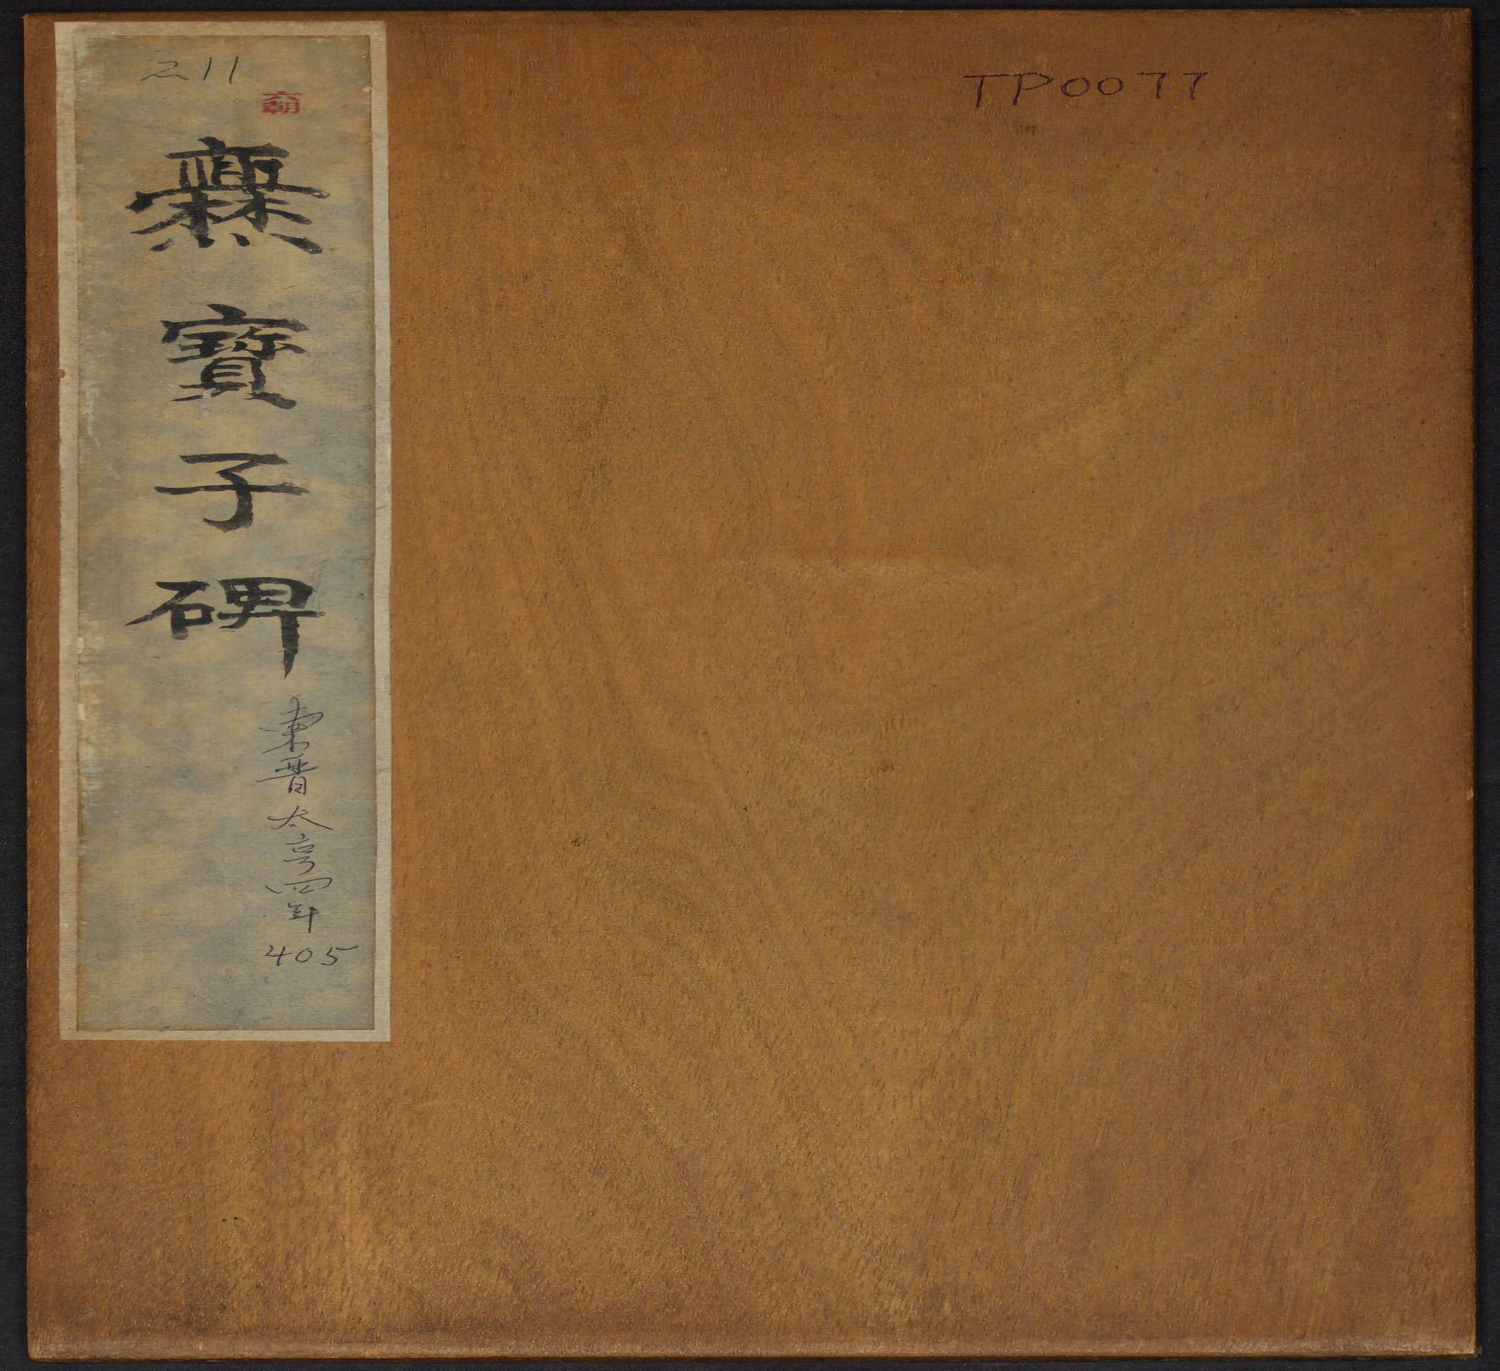 TP0077
211
六朝
爨寶子碑
東晋太亨四年
405